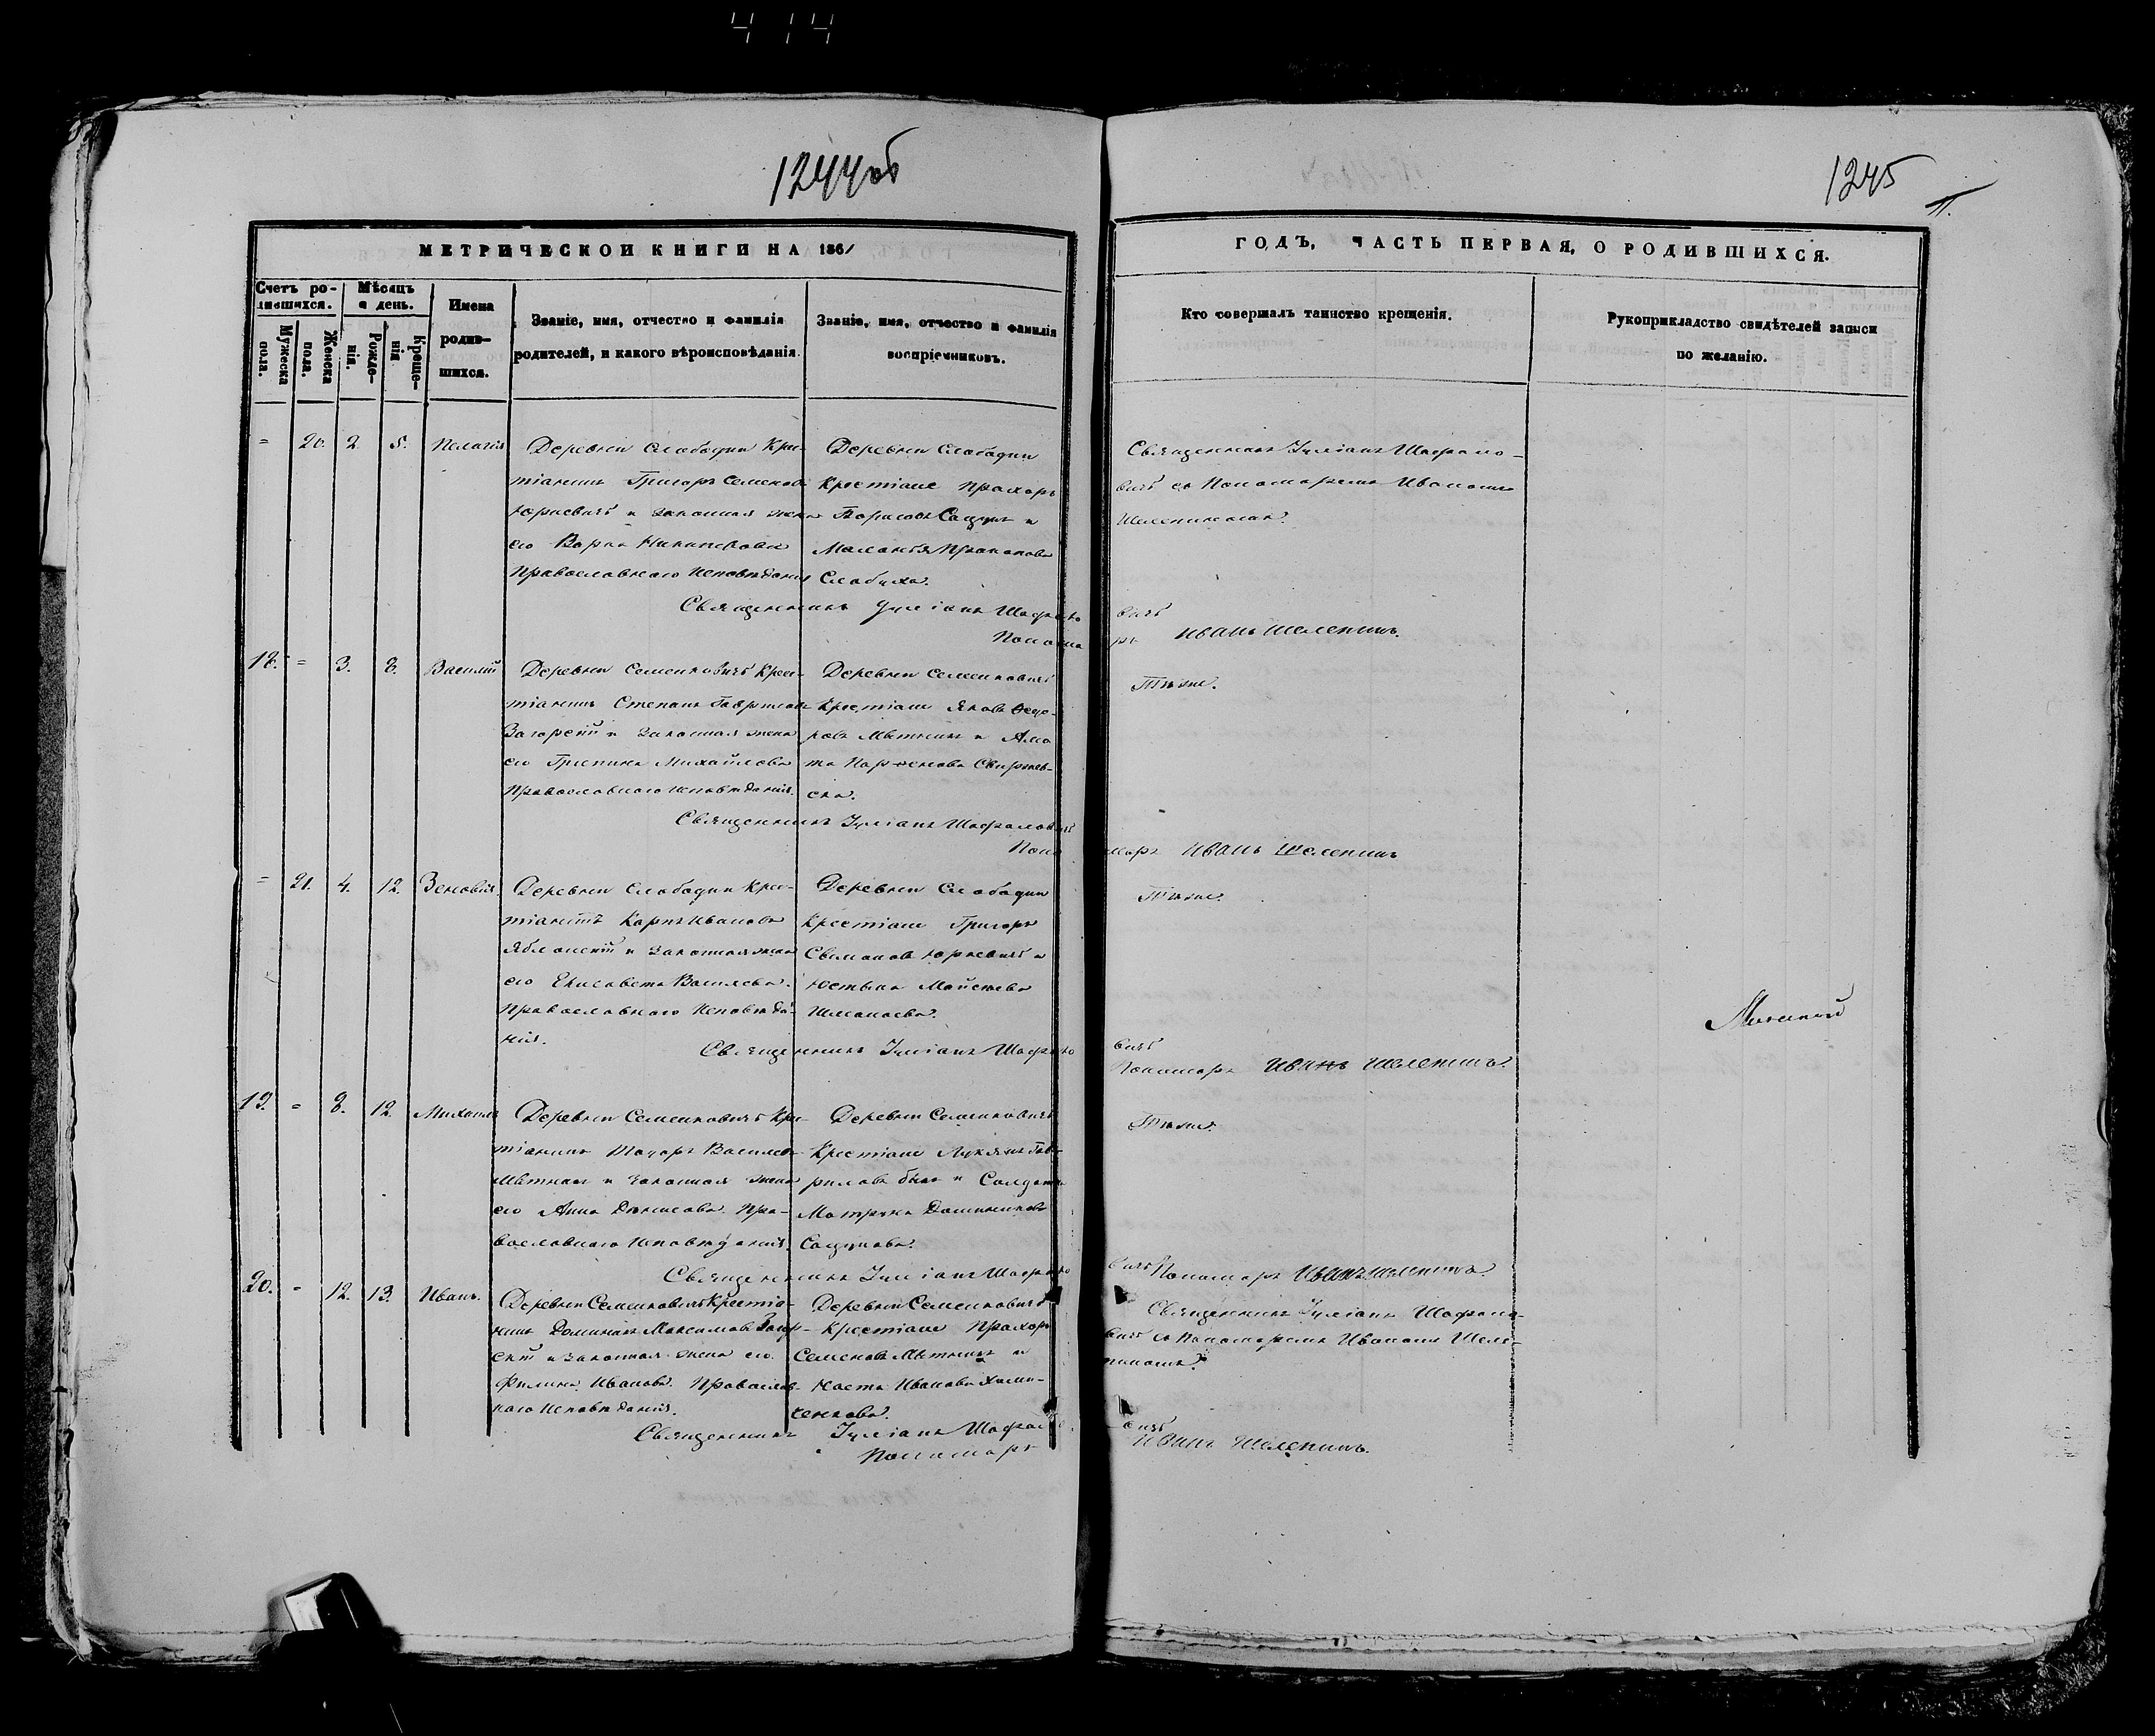 414
1244об
1245
МЕТРИЧЕСКОЙ КНИГИ НА 1861
ГОДЪ, ЧАСТЬ ПЕРВАЯ, О РОДИВШИХСЯ.
Счетъ ро-
дившихся.
Мужеска
пола.
Женска
пола.
Мѣсяцъ
и день.
Рожде-
нія.
Креще-
нія
Имена
родив-
шихся.
Званіе, имя, отчество и фамилія
родителей, и какого вѣроисповѣданія.
Званіе, имя, отчество и фамилія
воспріемниковъ.
Кто совершалъ таинство крещенія.
Рукоприкладство свидѣтелей записи
по желанію.
= 20. 2. 5. Пелагія
Деревни Слободци Крес-
тіанинъ Григоръ Семеновъ
Юркевичъ и законная жена
его Варка Никиперова
Православнаго Исповѣданія
Деревни Слободци
Крестіане Прохоръ
Борисовъ Сацукъ и
Маланья Прокопова
Слабуха.
Священникъ Іуліанъ Шафало-
вичъ съ Пономаремъ Иваномъ
Шелепинымъ.
Священникъ Іуліанъ Шафало
вичъ
Понома
ръ Иванъ Шелепинъ.
18. = 3. 8. Василій
Деревни Семенковичъ Крес-
тіанинъ Степанъ Гавриловъ
Загорскій и законная жена
его Грипина Михайлова
Православнаго исповѣданія.
Деревни Семенковичъ
Крестіане Яковъ Ѳедо-
ровъ Мѣтникъ и Ага
та Парѳенова Свиржев-
ска.
Тѣже.
Священникъ Іуліанъ Шафаловичъ
Поно
марь Иванъ Шелепинъ
= 21. 4. 12. Зеновія.
Деревни Слободци Крес-
тіанинъ Карпъ Иванова
Яблонскій и законная жена
его Елисавета Васильева.
Православнаго Исповѣда-
нія.
Деревни Слободци
Крестіане Григоръ
Семеновъ Юркевичъ и
Юстына Мойсеева
Тѣже.
Священникъ Іуліанъ Шафало
вичъ
Пономарь Иванъ Шелепинъ.
19. = 8. 12. Михаилъ
Деревни Семенковичъ Крес-
тіанинъ Тодоръ Васильевъ
Мѣтникъ и законная жена
его Анна Денисова Пра-
вославнаго Исповѣданія.
Деревни Семенковичъ
Крестіане Лукянъ Гав-
риловъ Быкъ и Солдатка
Матруна Доминикова
Сацукова.
Тѣже.
Священникъ Іуліанъ Шафало
вичъ Пономарь Иванъ Шелепинъ.
20. = 12. 13. Иванъ.
Деревни Семенковичъ Крестіа-
нинъ Доминикъ Максимовъ Загор-
скій и законная жена его
Филина Иванова. Православ-
наго Исповѣданія.
Деревни Семенковичъ
Крестіане Прохоръ
Семеновъ Мѣтникъ и
Наста Иванова Хими-
ченкова.
Священникъ Іуліанъ Шафало-
вичъ съ Пономаремъ Иваномъ Шеле-
пинымъ.
Священникъ Іуліанъ Шафало
вичъ
Пономарь
Иванъ Шелепинъ.